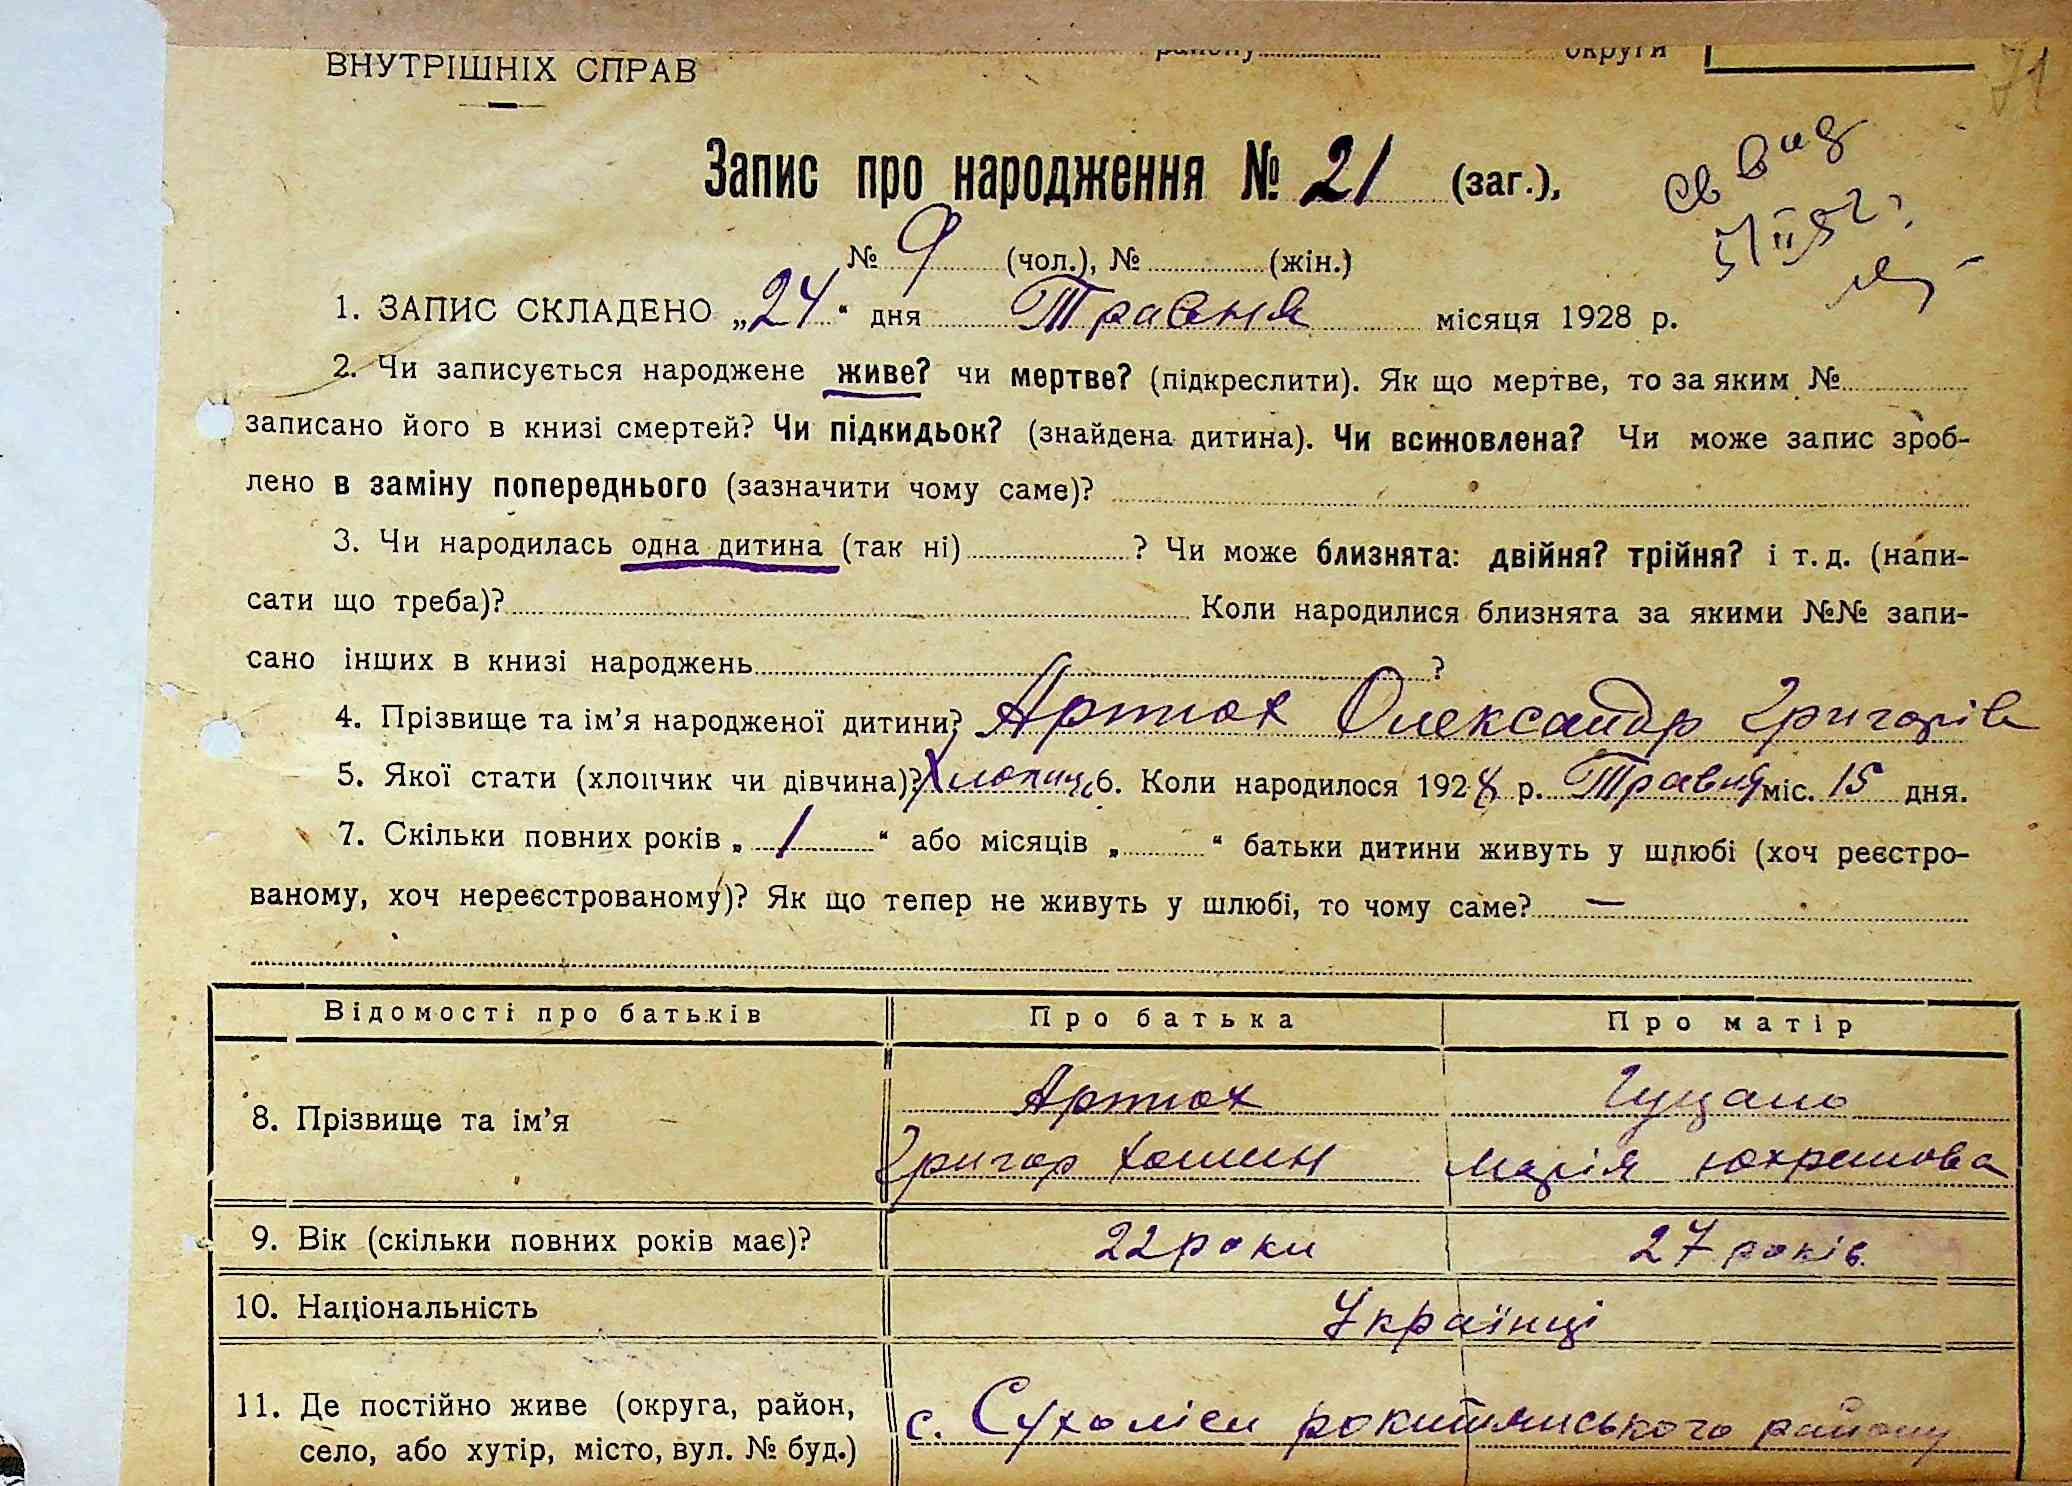 району округи
ВНУТРІШНІХ СПРАВ
71
Запис про народження № 21 (заг.),
№ 9 (чол.), № (жін.)
1. ЗАПИС СКЛАДЕНО „24“ дня Травня місяця 1928 р.
2. Чи записується народжене живе? чи мертве? (підкреслити). Як що мертве, то за яким №
записано його в книзі смертей? Чи підкидьок? (знайдена дитина). Чи всиновлена? Чи може запис зроб-
лено в заміну попереднього (зазначити чому саме)?
3. Чи народилась одна дитина (так ні) ? Чи може близнята: двійня? трійня? і т. д. (напи-
сати що треба)? Коли народилися близнята за якими №№ запи-
сано інших в книзі народжень ?
4. Прізвище та ім’я народженої дитини? Артюх Олександр Григорів
5. Якої статі (хлопчик чи дівчина)? Хлопиць 6. Коли народилося 1928 р. Травня міс. 15 дня.
7. Скільки повних років „ 1 “ або місяців „ “ батьки дитини живуть у шлюбі (хоч реєстро-
ваному, хоч нереєстрованому)? Як що тепер не живуть у шлюбі, то чому саме? —
Відомості про батьків Про батька Про матір
8. Прізвище та ім’я
Артюх
Григор Хомин Марія
9. Вік (скільки повних років має)? 22 роки 27 років
10. Національність Українці
11. Де постійно живе (округа, район,
село, або хутір, місто, вул. № буд.)
с. Сухоліси рокитянського району